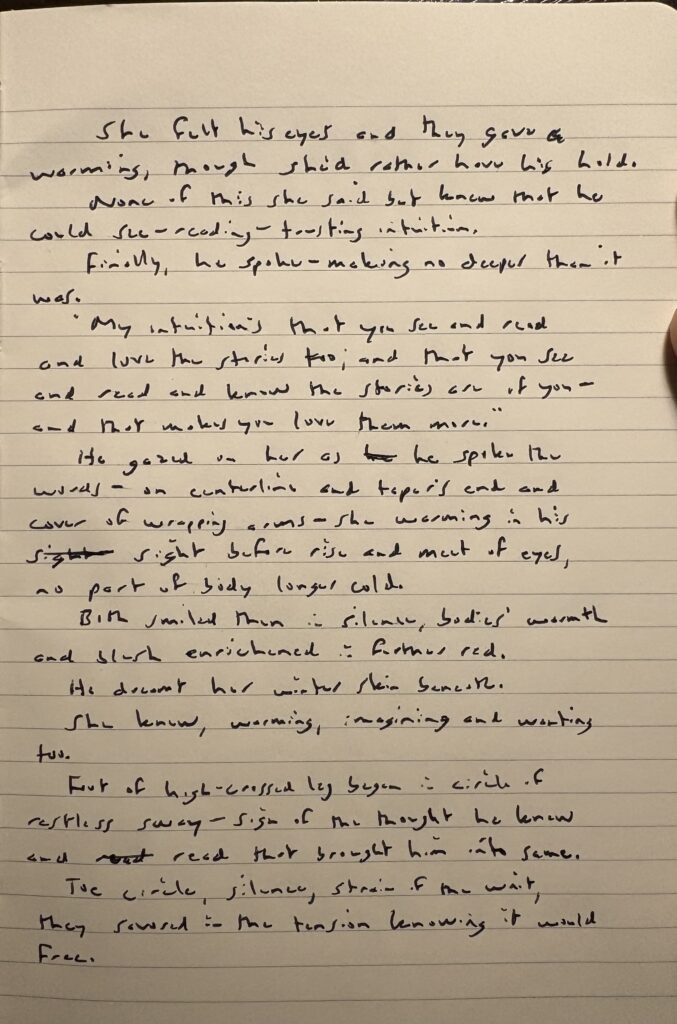 She felt his eyes and they gave a
warming, though she'd rather have his hold.
None of this she said but knew that he
could see—reading—trusting intuition.
Finally, he spoke—making no deeper than it
was.
"My intuition's that you see and read
and love the stories too; and that you see
and read and know the stories are of you—
and that makes you love them more."
He gazed on her as he he spoke the
words—on centerline and taper's end and
cover of wrapping arms—she warming in his
sight sight before rise and meet of eyes,
no part of body longer cold.
Both smiled then in silence, bodies' warmth
and blush enrichened in further red.
He dreamt her winter skin beneath.
She knew, warming, imagining and wanting
too.
Foot of high-crossed leg began in circle of
restless sway—sign of the thought he knew
and read read that brought him into same.
Toe circle, silence, strain of the wait,
they savored in the tension knowing it would
free.